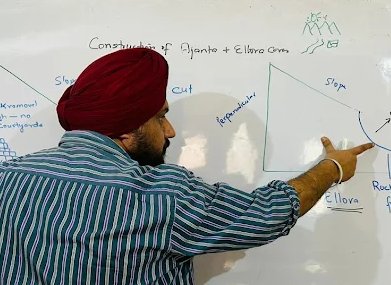 Construction of Ajanta + Ellora Caves
Slop
cut
- no
Courtyards
Perpendicular
Slop
Ellora